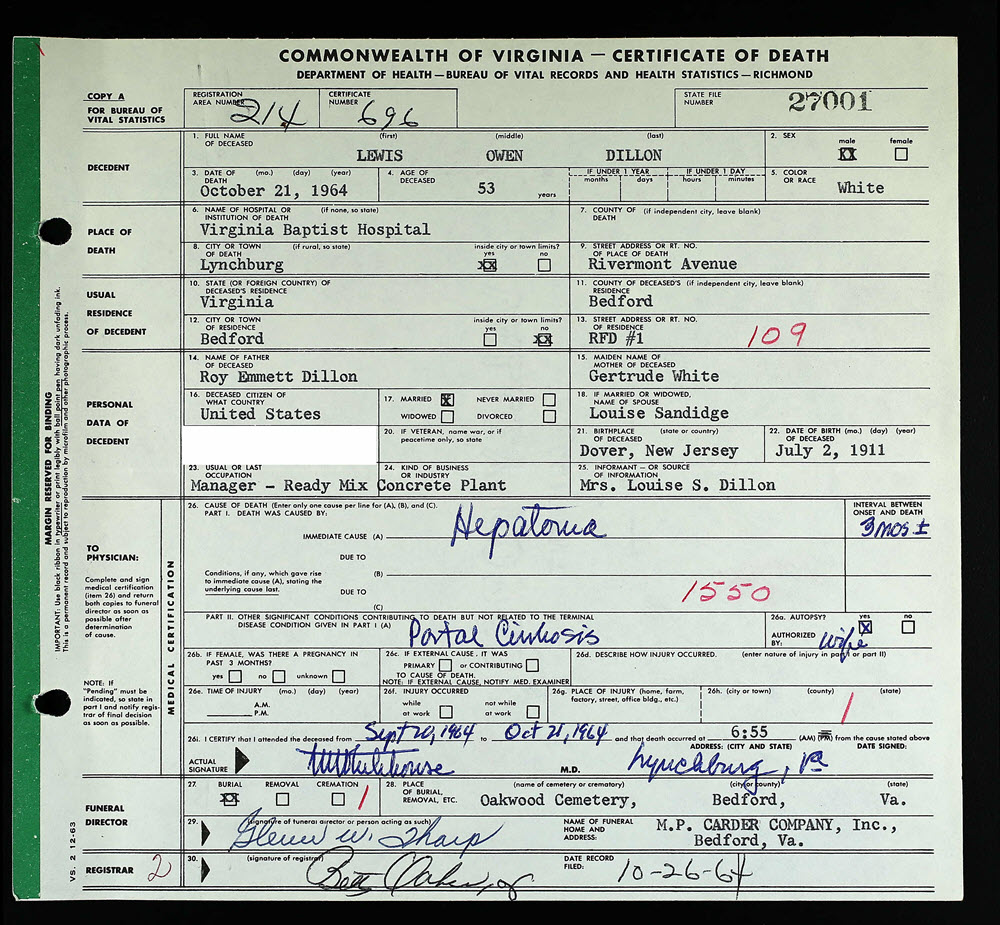 COMMONWEALTH OF VIRGINIA — CERTIFICATE OF DEATH
DEPARTMENT OF HEALTH — BUREAU OF VITAL RECORDS AND HEALTH STATISTICS — RICHMOND
COPY A
FOR BUREAU OF
VITAL STATISTICS
REGISTRATION AREA NUMBER 214
CERTIFICATE NUMBER 696
STATE FILE NUMBER 27001
DECEDENT
1. FULL NAME OF DECEASED (first) (middle) (last)
LEWIS OWEN DILLON
2. SEX male XX female
3. DATE OF DEATH (mo.) (day) (year)
October 21, 1964
4. AGE OF DECEASED 53 years
IF UNDER 1 YEAR months days
IF UNDER 1 DAY hours minutes
5. COLOR OR RACE White
PLACE OF DEATH
6. NAME OF HOSPITAL OR INSTITUTION OF DEATH (if none, so state)
Virginia Baptist Hospital
7. COUNTY OF DEATH (if independent city, leave blank)
8. CITY OR TOWN OF DEATH (if rural, so state)
Lynchburg
inside city or town limits? yes XX no
9. STREET ADDRESS OR RT. NO. OF PLACE OF DEATH
Rivermont Avenue
USUAL RESIDENCE OF DECEDENT
10. STATE (OR FOREIGN COUNTRY) OF DECEASED'S RESIDENCE
Virginia
11. COUNTY OF DECEASED'S RESIDENCE (if independent city, leave blank)
Bedford
12. CITY OR TOWN OF RESIDENCE
Bedford
inside city or town limits? yes no XX
13. STREET ADDRESS OR RT. NO. OF RESIDENCE
RFD #1 109
PERSONAL DATA OF DECEDENT
14. NAME OF FATHER OF DECEASED
Roy Emmett Dillon
15. MAIDEN NAME OF MOTHER OF DECEASED
Gertrude White
16. DECEASED CITIZEN OF WHAT COUNTRY
United States
17. MARRIED X NEVER MARRIED
WIDOWED DIVORCED
18. IF MARRIED OR WIDOWED, NAME OF SPOUSE
Louise Sandidge
20. IF VETERAN, name war, or if peacetime only, so state
21. BIRTHPLACE OF DECEASED (state or country)
Dover, New Jersey
22. DATE OF BIRTH (mo.) (day) (year) OF DECEASED
July 2, 1911
23. USUAL OR LAST OCCUPATION
24. KIND OF BUSINESS OR INDUSTRY
Manager - Ready Mix Concrete Plant
25. INFORMANT — OR SOURCE OF INFORMATION
Mrs. Louise S. Dillon
MARGIN RESERVED FOR BINDING
IMPORTANT. Use black ribbon in typewriter or print legibly with ball point pen having dark unfading ink.
This is a permanent record and subject to reproduction by microfilm and other photographic process.
TO PHYSICIAN:
Complete and sign
medical certification
(item 26) and return
both copies to funeral
director as soon as
possible after
determination
of cause.
NOTE: If
"Pending" must be
indicated, so state in
part I and notify regis-
trar of final decision
as soon as possible.
MEDICAL CERTIFICATION
26. CAUSE OF DEATH (Enter only one cause per line for (A), (B), and (C).
PART I. DEATH WAS CAUSED BY:
IMMEDIATE CAUSE (A) Hepatoma
INTERVAL BETWEEN ONSET AND DEATH
3 mos ±
DUE TO
Conditions, if any, which gave rise
to immediate cause (A), stating the
underlying cause last.
(B)
DUE TO
1550
(C)
PART II. OTHER SIGNIFICANT CONDITIONS CONTRIBUTING TO DEATH BUT NOT RELATED TO THE TERMINAL
DISEASE CONDITION GIVEN IN PART I (A)
Portal Cirrhosis
26a. AUTOPSY? yes X no
AUTHORIZED BY: wife
26b. IF FEMALE, WAS THERE A PREGNANCY IN PAST 3 MONTHS?
yes no unknown
26c. IF EXTERNAL CAUSE, IT WAS
PRIMARY or CONTRIBUTING
TO CAUSE OF DEATH.
NOTE: IF EXTERNAL CAUSE, NOTIFY MED. EXAMINER
26d. DESCRIBE HOW INJURY OCCURRED. (enter nature of injury in part I or part II)
26e. TIME OF INJURY (mo.) (day) (year)
A.M.
P.M.
26f. INJURY OCCURRED
while at work not while at work
26g. PLACE OF INJURY (home, farm, factory, street, office bldg., etc.)
26h. (city or town) (county) (state)
26i. I CERTIFY that I attended the deceased from Sept 20, 1964 to Oct 21, 1964 and that death occurred at 6:55 (AM) (PM) from the cause stated above
ACTUAL SIGNATURE M.D.
ADDRESS: (CITY AND STATE) DATE SIGNED:
Lynchburg, Va
FUNERAL DIRECTOR
27. BURIAL XX REMOVAL CREMATION
28. PLACE OF BURIAL, REMOVAL, ETC. (name of cemetery or crematory) (city or county) (state)
Oakwood Cemetery, Bedford, Va.
29. (signature of funeral director or person acting as such)
Glenn W. Tharp
NAME OF FUNERAL HOME AND ADDRESS:
M.P. CARDER COMPANY, Inc.,
Bedford, Va.
REGISTRAR 2
30. (signature of registrar)
DATE RECORD FILED: 10-26-64
VS. 2 12-63